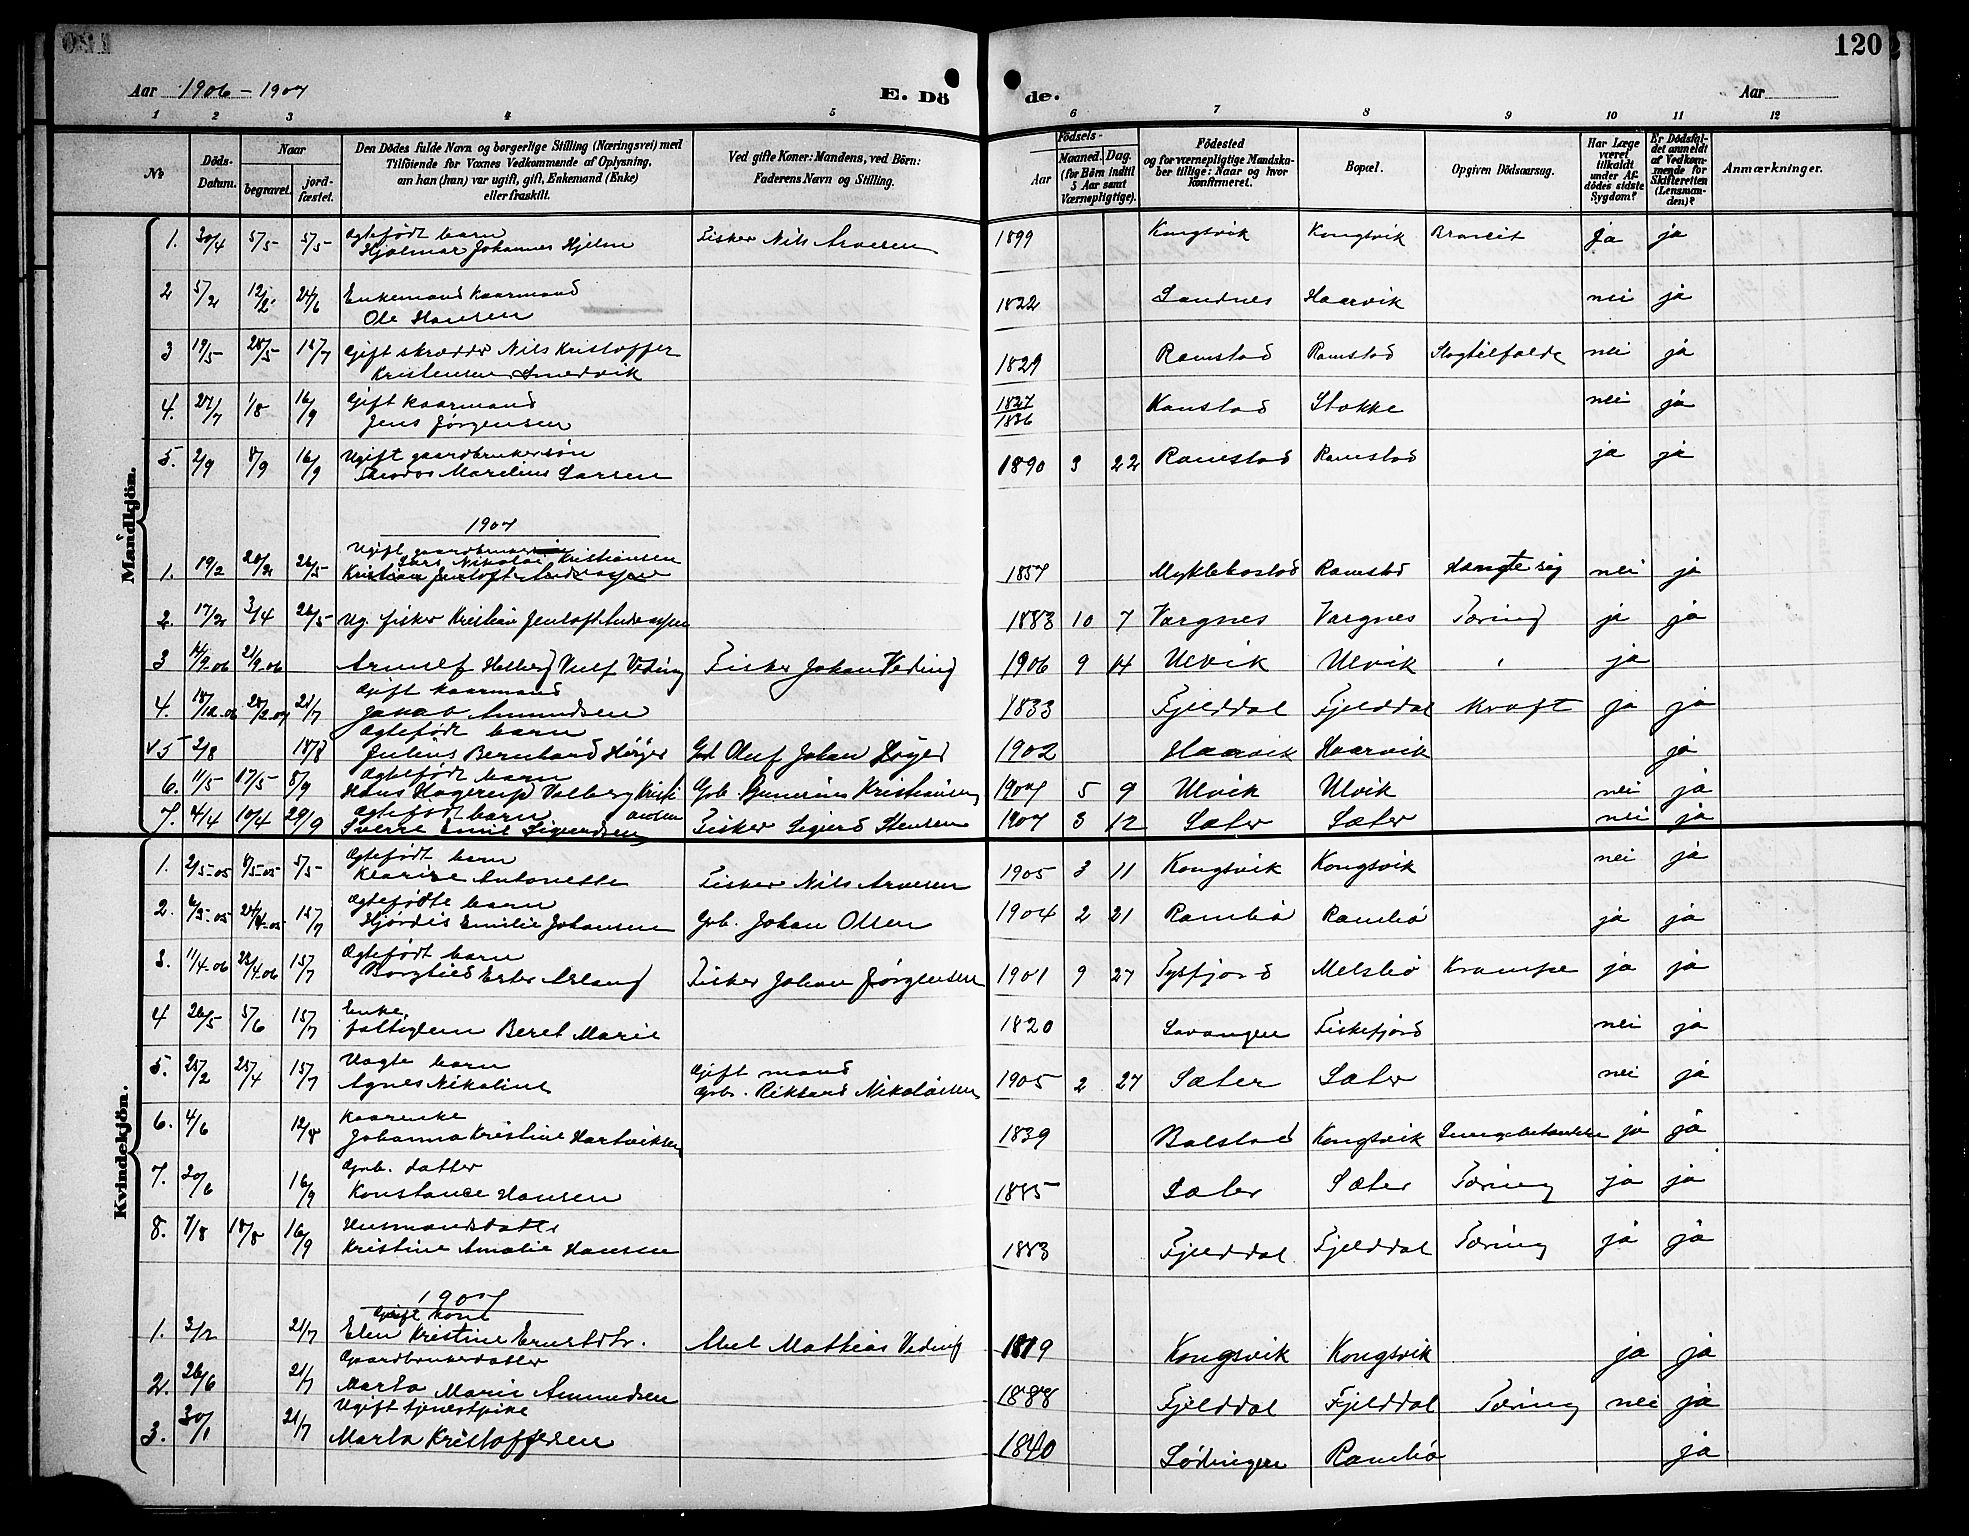 120
Aar 1906-1907
E. Dö
de.
Aar
1 2 3 4 5 6 7 8 9 10 11 12
No
Döds-Datum.
Naar
begravet.
jord-fæstet.
Den Dödes fulde Navn og borgerlige Stilling (Næringsvei) med
Tilföiende for Voxnes Vedkommende af Oplysning,
om han (hun) var ugift, gift, Enkemand (Enke)
eller fraskilt.
Ved gifte Koner: Mandens, ved Börn:
Faderens Navn og Stilling.
Födsels-
Aar
Maaned. Dag.
(for Börn indtil
5 Aar samt
Værnepligtige).
Födested
og for værnepligtige Mandska-
ber tillige: Naar og hvor
konfirmeret.
Bopæl.
Opgiven Dödsaarsag.
Har Læge
været
tilkaldt
under Af-
dödes sidste
Sygdom?
Er Dödsfal-
det anmeldt
af Vedkom-
mende for
Skifteretten
(Lensman-
den)?
Anmærkninger.
Mandkjön.
1. 30/4 5/5 5/5 Ægtefødt barn
Hjalmar Johannes Hjelm Fisker Nils Arvesen 1899 Kongsvik Kongsvik Ja ja
2 5/2 12/2 24/6 Enkemand kaarmand
Ole Hansen 1822 Sandnes Haarvik nei ja
3 19/5 28/5 15/7 Gift skrædder Nils Kristoffer
Kristensen 1829 Ramstad Ramstad Slagtilfælde nei ja
4. 27/7 1/8 16/9 Gift kaarmand
Jens Jørgensen 1827
1836 Kanstad Stokke nei ja
5. 2/9 8/9 16/9 Ugift gaardbrukersøn
Marelius Larsen 1890 3 22 Ramstad Ramstad ja ja
1907
1. 19/2 28/2 26/5 Ugift gaardbruker
Lars Nikolai Kristiansen
Kristian Jentoft Andreassen 1857 Myklebostad Ramstad Hængte sig nei ja
2. 17/2 3/4 26/5 Ug. fisker Kristian Jentoft Andreassen 1883 10 7 Vargnes Vargnes Tæring ja ja
3 14/9.06 21/9.06 Arnulf Holberg Vulf Veding Fisker Johan Veding 1906 9 14 Ulvik Ulvik ja
4. 18/12.06 28/2.07 21/7 Gift kaarmand
Jakob Amundsen 1833 Fjelddal Fjelddal Kræft ja ja
5 2/8 18/8 Ægtefødt barn
Julius Bernhard Høyer Gbr. Oluf Johan Høyer 1902 Haarvik Haarvik ja
6. 11/5 17/5 8/9 Ægtefødt barn
Hans Hagerup Valberg Kristi
ansen Grb. Gunerius Kristiansen 1907 5 9 Ulvik Ulvik nei ja
7. 4/4 10/4 29/9 Ægtefødt barn
Sverre Emil Sigurdsen Fisker Sigurd Stensen 1907 3 12 Sæter Sæter nei ja
Kvindekjön.
1. 2/5-05 8/5-05 5/5 Ægtefødt barn
Antonette Fisker Nils Arvesen 1905 3 11 Kongsvik Kongsvik nei ja
2. 15/7 Ægtefødte barn
Hjørdis Emilie Johansen Grb. Johan Olsen 1904 2 21 Rambø Rambø ja ja
3. 11/4.06 28/4.06 15/7 Ægtefødt barn
Borghild Ester Fisker Johan Jørgensen 1901 9 27 Tysfjord Melsbø Krampe ja ja
4 26/5 5/6 15/7 Enke,
fattiglem Beret Marie 1820 Lavangen Fiskefjord nei ja
5. 25/2 25/4 15/7 Uægte barn
Agnes Nikoline Gift mand
Grb. Rikhard Nikolaisen 1905 2 27 Sæter Sæter nei ja
6. 4/6 12/8 Kaarenke
Johanna Kristine Hartviksen 1839 Balstad Kongsvik Lungebetændelse ja ja
7. 20/6 16/9 Grb. datter
Konstance Hansen 1885 Sæter Sæter Tæring ja ja
8. 7/8 18/8 16/9 Husmandsdatter
Kristine Amalie Hansen 1883 Fjelddal Fjelddal Tæring ja ja
1907
1. 3/2 21/7 Gift kone
Elen Kristine Ernstdtr. Abel Mathias Veding 1819 Kongsvik Kongsvik ja ja
2. 26/6 21/7 Gaardbrukerdatter
Marta Marie Amundsen 1888 Fjelddal Fjelddal Tæring nei ja
3. 30/1 21/7 Ugift tjenestpike
Marta Kristoffersen 1840 Lødingen Rambø ja